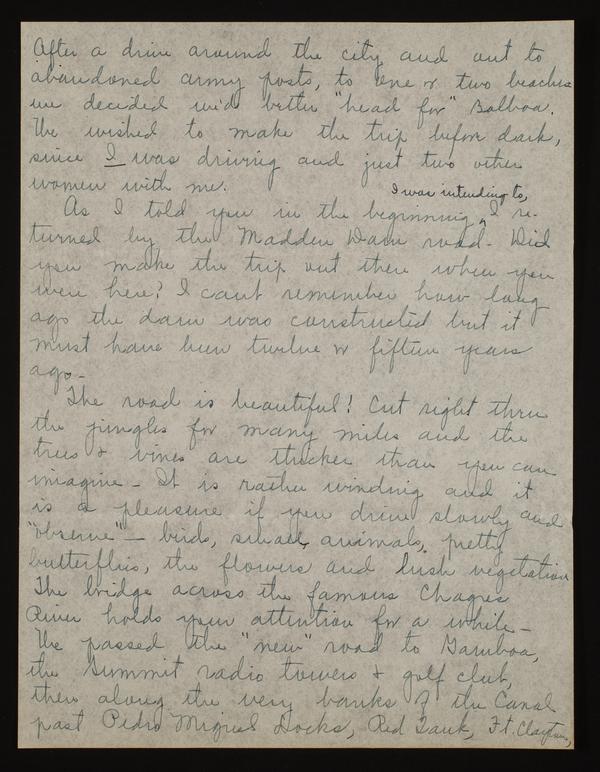 After a drive around the city and out to
abandoned army posts, to one or two beaches
we decided we'd better "head for" Balboa.
We wished to make the trip before dark,
since I was driving and just two other
women with me.
I was intending to,
As I told you in the beginning, I re-
turned by the Madden Dam road. Did
you make the trip out there when you
were here? I cant remember how long
ago the dam was constructed but it
must have been twelve or fifteen years
ago.
The road is beautiful! Cut right thru
the jungles for many miles and the
trees & vines are thicker than you can
imagine. It is rather winding and it
is a pleasure if you drive slowly and
"observe" - birds, small animals, pretty
butterflies, the flowers and lush vegetation
The bridge across the famous Chagres
River holds your attention for a while.
We passed the "new" road to Gamboa,
the Summit radio towers & golf club,
then along the very banks of the Canal
past Pedro Miguel Locks, Red Tank, Ft. Clayton,